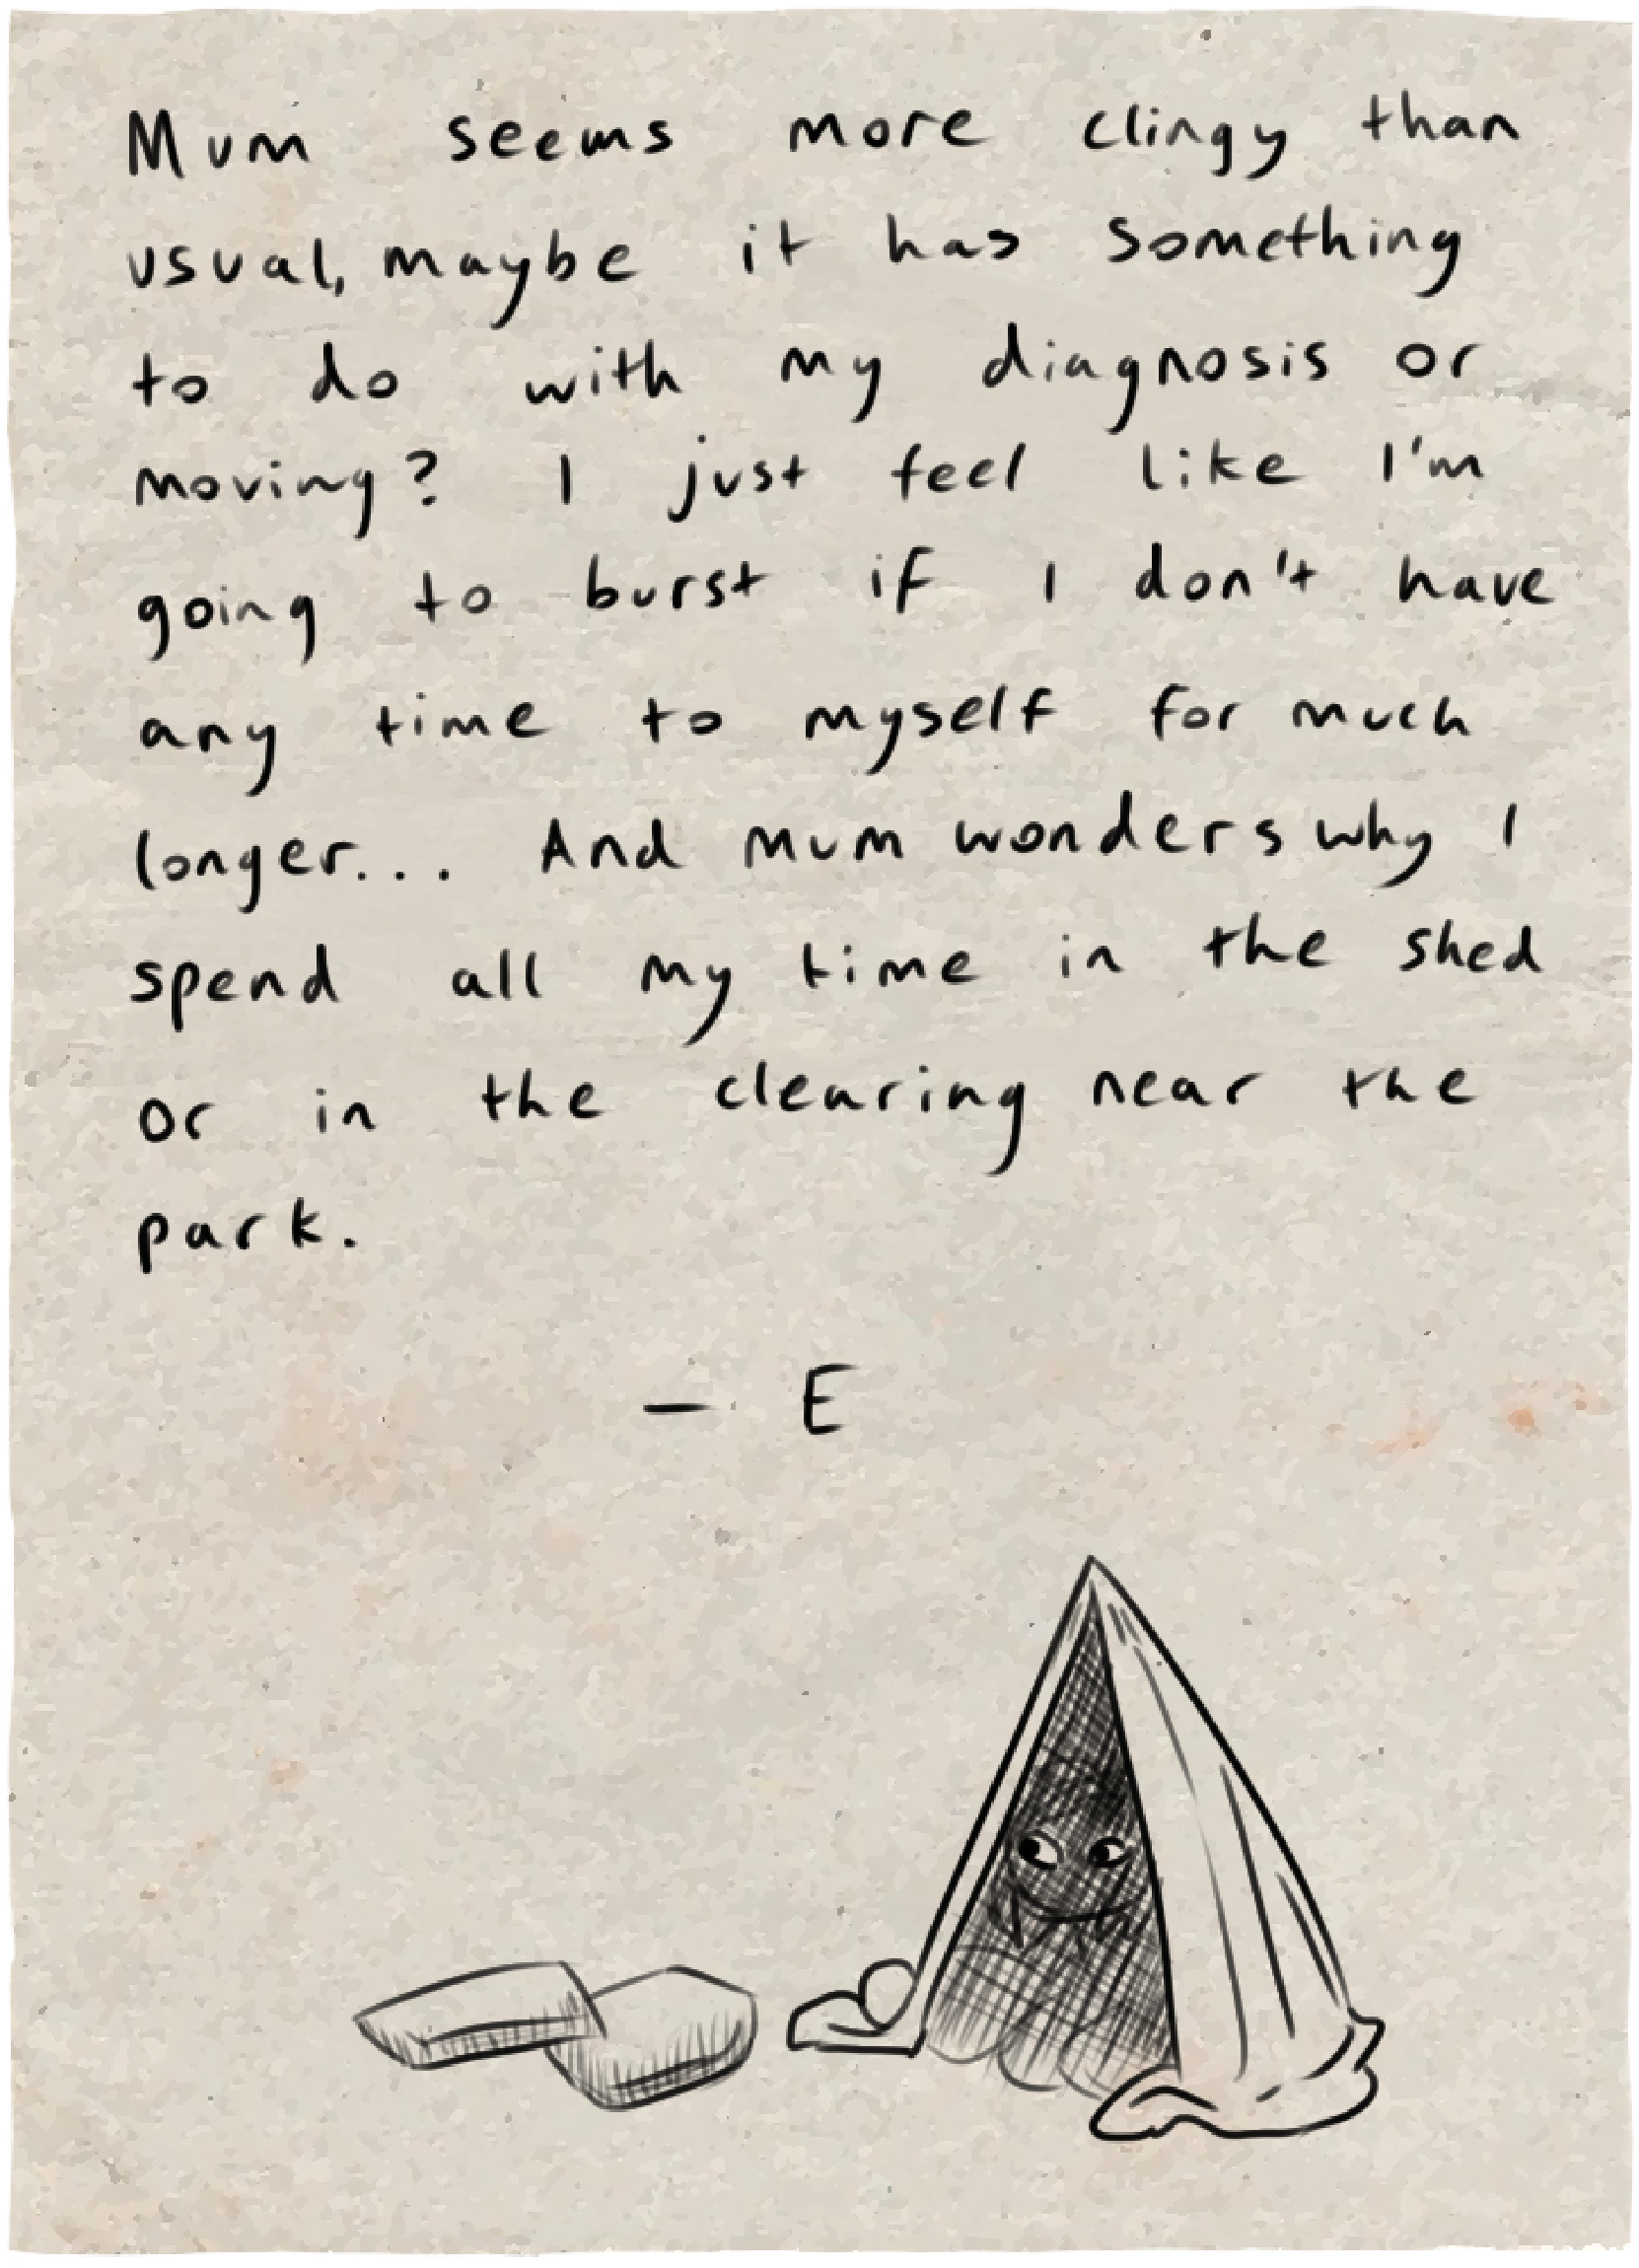 Mum seems more clingy than
usual, maybe it has something
to do with my diagnosis or
moving? I just feel like I'm
going to burst if I don't have
any time to myself for much
longer... And mum wonders why I
spend all my time in the shed
or in the clearing near the
park.
— E